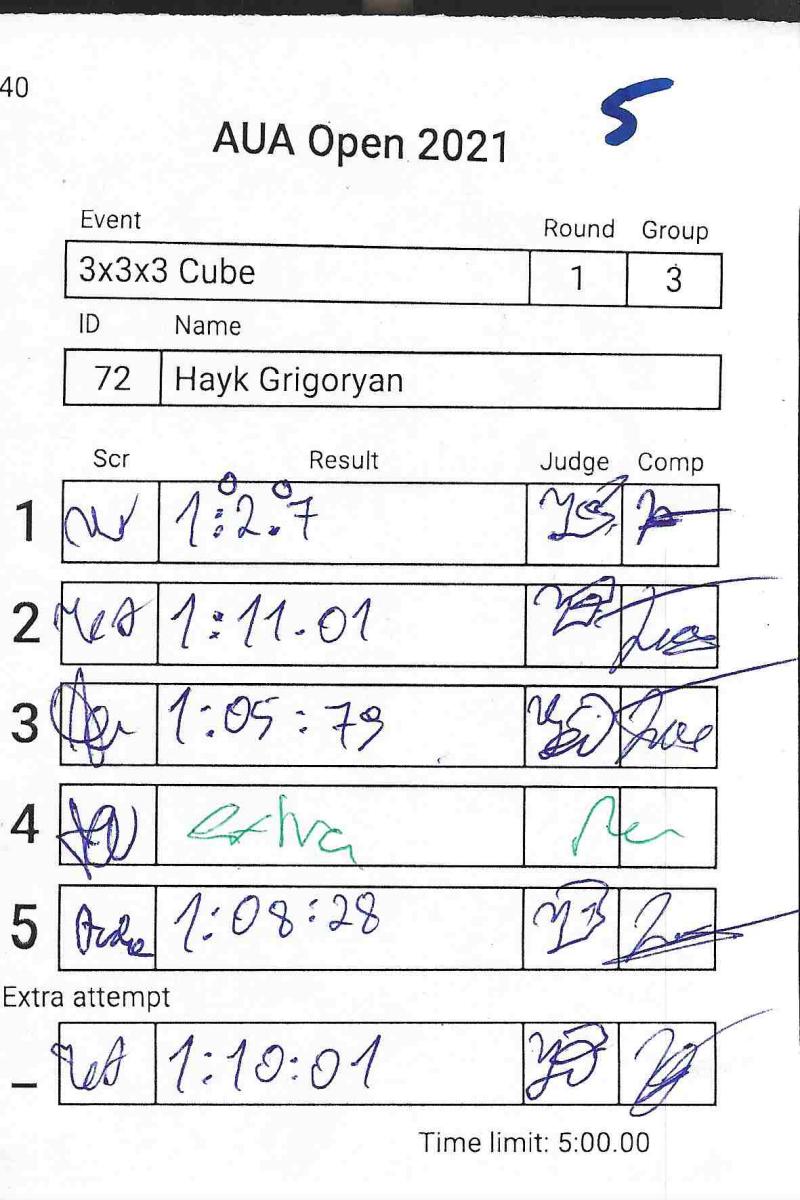 40
5
AUA Open 2021
Event Round Group
3x3x3 Cube 1 3
ID Name
72 Hayk Grigoryan
Scr Result Judge Comp
1 1:02.07
2 1:11.01
3 1:05:79
4 extra
5 1:08:28
Extra attempt
_ 1:10:01
Time limit: 5:00.00